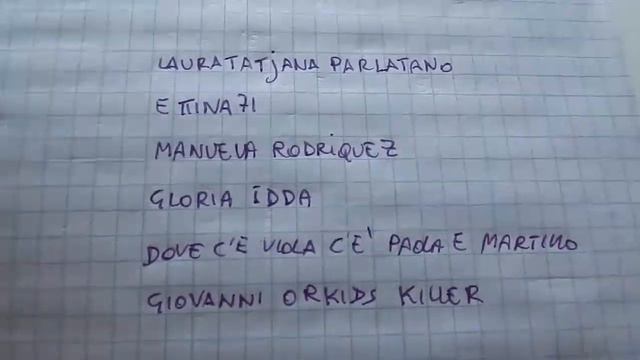 LAURATATJANA PARLATANO
ETTINA71
MANUELA RODRIQUEZ
GLORIA IDDA
DOVE C'È VIOLA C'È PAOLA E MARTINO
GIOVANNI ORKIDS KILLER